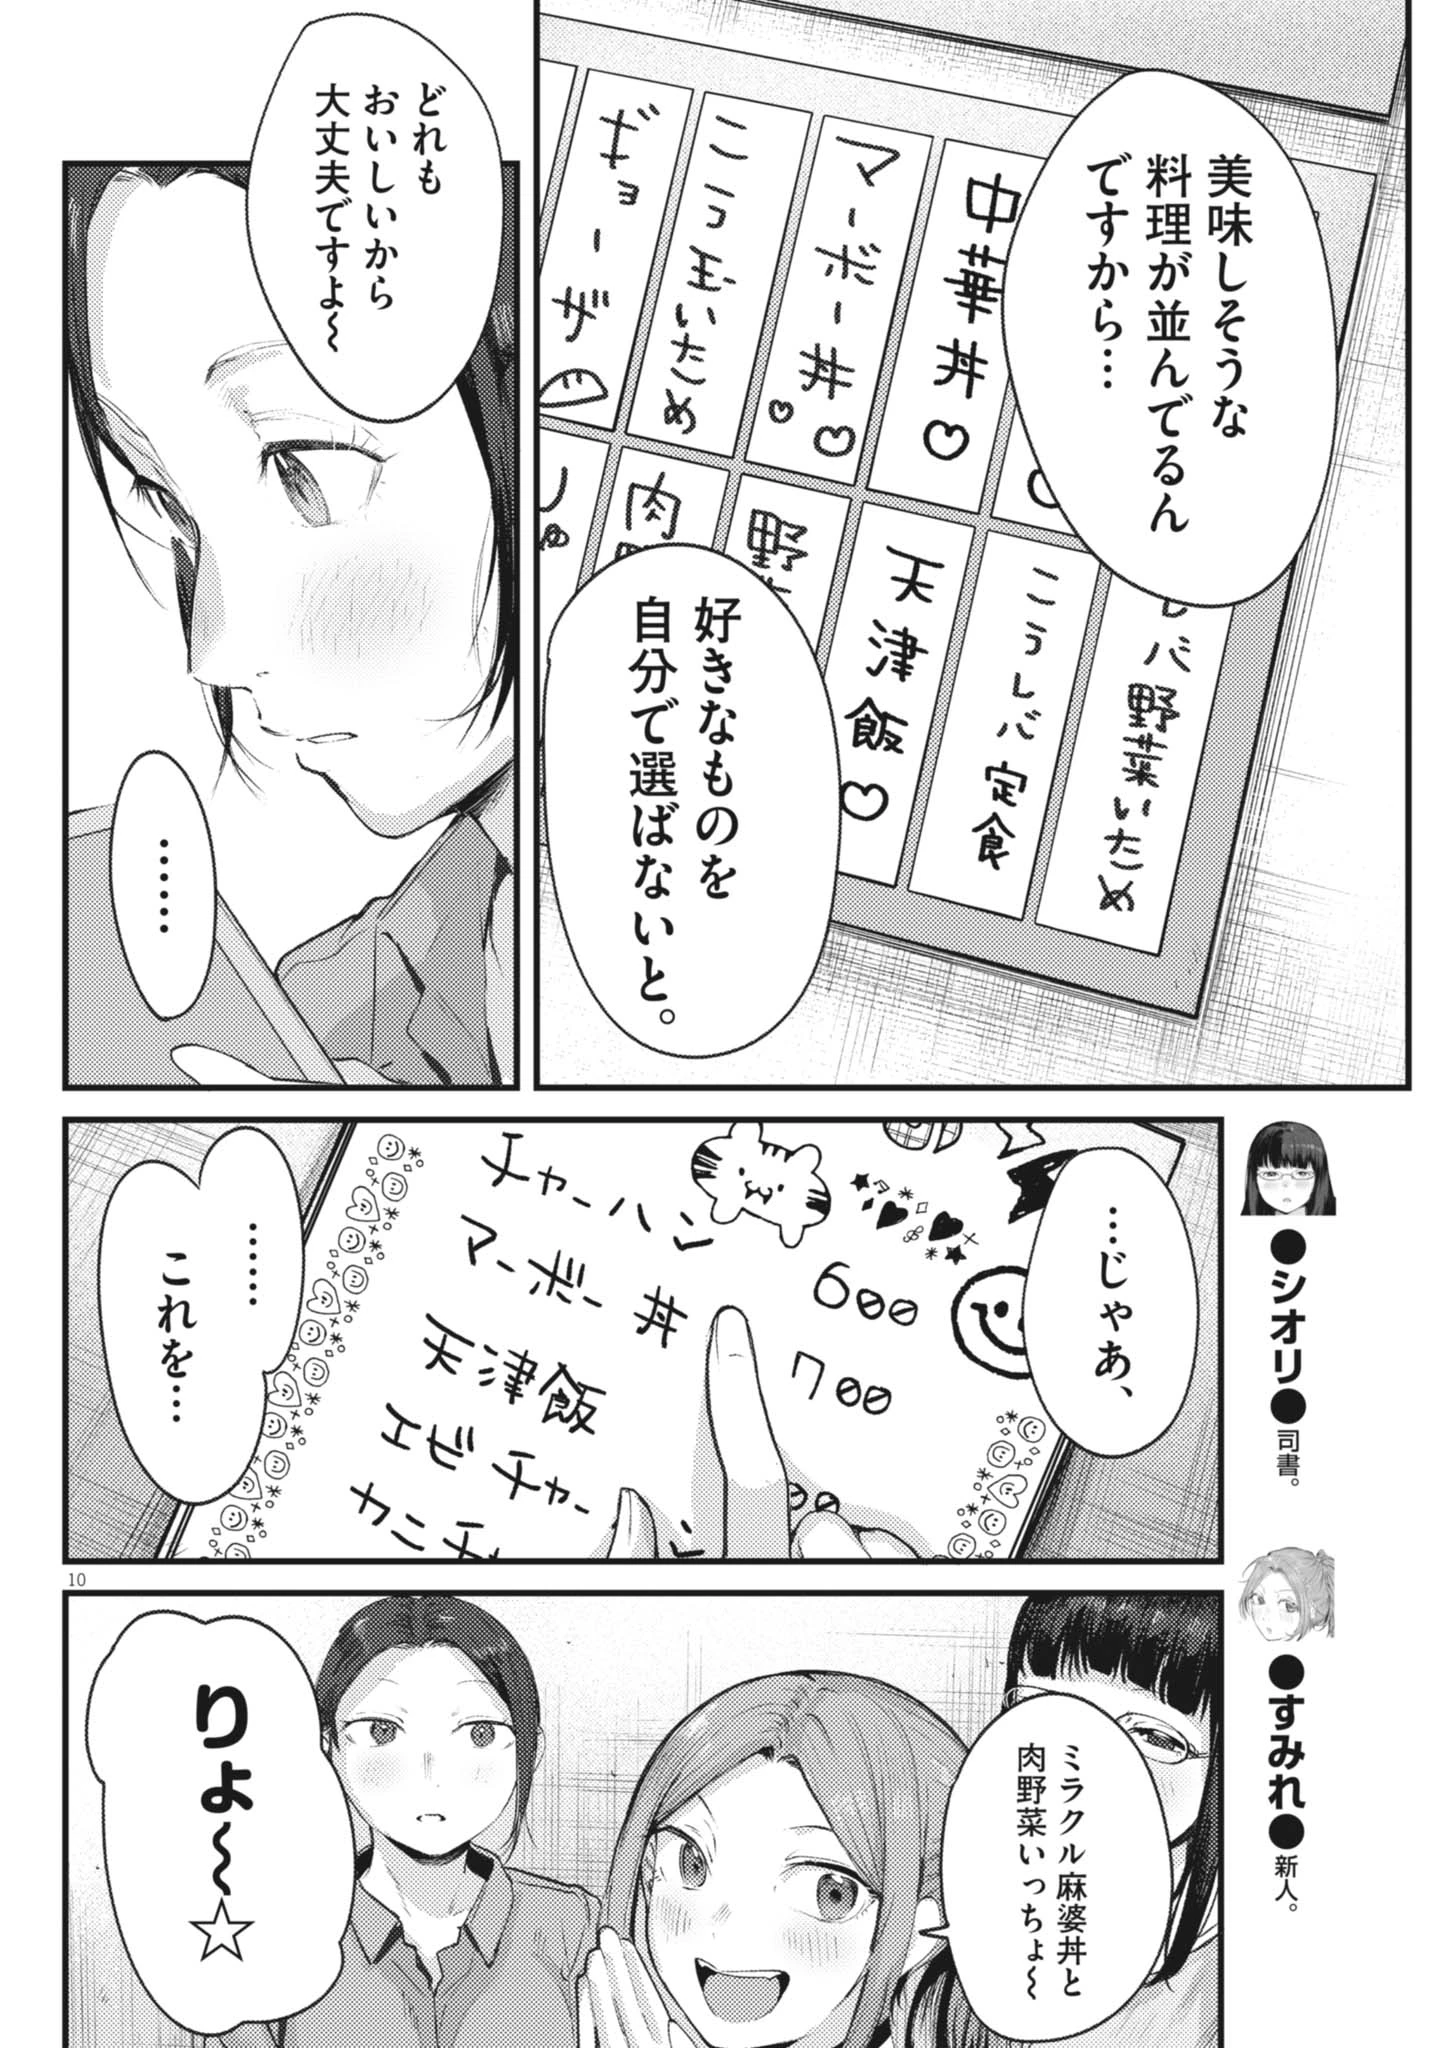 美味しそうな
料理が並んでるん
ですから…
中華丼♡
マーボー丼♡♡
こう玉いため
ギョーザ
レバ野菜いため
こうレバ定食
天津飯♡
野
肉
しゅ
好きなものを
自分で選ばないと。
どれも
おいしいから
大丈夫ですよ〜
……
…じゃあ、
チャーハン
マーボー丼
天津飯
エビチャー
カニチャ
600
700
00
……
これを…
●シオリ●司書。
●すみれ●新人。
10
ミラクル麻婆丼と
肉野菜いっちょ〜
りょ〜☆